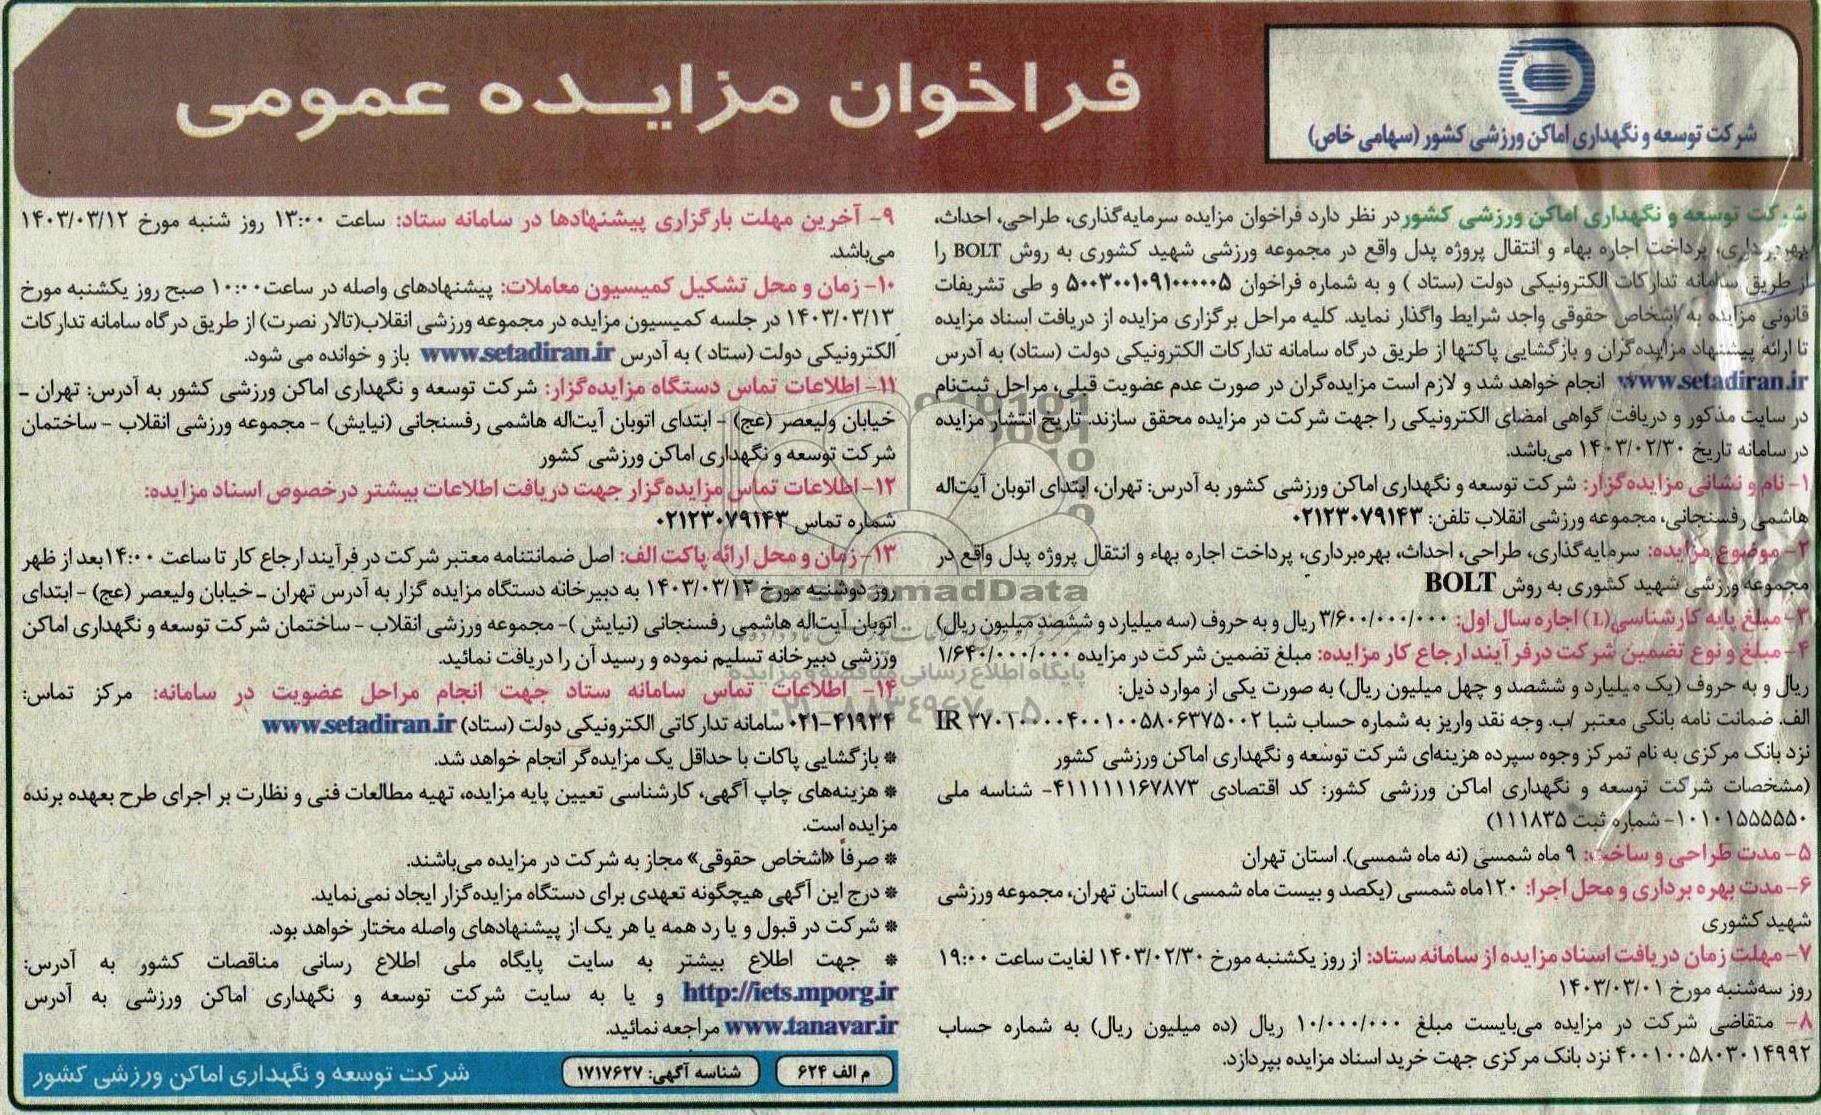 فراخوان مزایده عمومی
شرکت توسعه و نگهداری اماکن ورزشی کشور (سهامی خاص)
شرکت توسعه و نگهداری اماکن ورزشی کشور در نظر دارد فراخوان مزایده سرمایه‌گذاری، طراحی، احداث،
بهره‌برداری، پرداخت اجاره بهاء و انتقال پروژه پدل واقع در مجموعه ورزشی شهید کشوری به روش BOLT را
از طریق سامانه تدارکات الکترونیکی دولت (ستاد ) و به شماره فراخوان ۵۰۰۳۰۰۱۰۹۱۰۰۰۰۰۵ و طی تشریفات
قانونی مزایده به اشخاص حقوقی واجد شرایط واگذار نماید. کلیه مراحل برگزاری مزایده از دریافت اسناد مزایده
تا ارائه پیشنهاد مزایده‌گران و بازگشایی پاکتها از طریق درگاه سامانه تدارکات الکترونیکی دولت (ستاد) به آدرس
www.setadiran.ir انجام خواهد شد و لازم است مزایده‌گران در صورت عدم عضویت قبلی، مراحل ثبت‌نام
در سایت مذکور و دریافت گواهی امضای الکترونیکی را جهت شرکت در مزایده محقق سازند. تاریخ انتشار مزایده
در سامانه تاریخ ۱۴۰۳/۰۲/۳۰ می‌باشد.
۱- نام و نشانی مزایده‌گزار: شرکت توسعه و نگهداری اماکن ورزشی کشور به آدرس: تهران، ابتدای اتوبان آیت‌اله
هاشمی رفسنجانی، مجموعه ورزشی انقلاب تلفن: ۰۲۱۲۳۰۷۹۱۴۳
۲- موضوع مزایده: سرمایه‌گذاری، طراحی، احداث، بهره‌برداری، پرداخت اجاره بهاء و انتقال پروژه پدل واقع در
مجموعه ورزشی شهید کشوری به روش BOLT
۳- مبلغ پایه کارشناسی(L) اجاره سال اول: ۳/۶۰۰/۰۰۰/۰۰۰ ریال و به حروف (سه میلیارد و ششصد میلیون ریال)
۴- مبلغ و نوع تضمین شرکت در فرآیند ارجاع کار مزایده: مبلغ تضمین شرکت در مزایده ۱/۶۴۰/۰۰۰/۰۰۰
ریال و به حروف (یک میلیارد و ششصد و چهل میلیون ریال) به صورت یکی از موارد ذیل:
الف. ضمانت نامه بانکی معتبر /ب. وجه نقد واریز به شماره حساب شبا IR ۳۷۰۱۰۰۰۰۴۰۰۱۰۰۵۸۰۶۳۷۵۰۰۲
نزد بانک مرکزی به نام تمرکز وجوه سپرده هزینه‌ای شرکت توسعه و نگهداری اماکن ورزشی کشور
(مشخصات شرکت توسعه و نگهداری اماکن ورزشی کشور: کد اقتصادی ۴۱۱۱۱۱۱۶۷۸۷۳- شناسه ملی
۱۰۱۰۱۵۵۵۵۵۰- شماره ثبت ۱۱۱۸۳۵)
۵- مدت طراحی و ساخت: ۹ ماه شمسی (نه ماه شمسی). استان تهران
۶- مدت بهره برداری و محل اجرا: ۱۲۰ماه شمسی (یکصد و بیست ماه شمسی ) استان تهران، مجموعه ورزشی
شهید کشوری
۷- مهلت زمان دریافت اسناد مزایده از سامانه ستاد: از روز یکشنبه مورخ ۱۴۰۳/۰۲/۳۰ لغایت ساعت ۱۹:۰۰
روز سه‌شنبه مورخ ۱۴۰۳/۰۳/۰۱
۸- متقاضی شرکت در مزایده می‌بایست مبلغ ۱۰/۰۰۰/۰۰۰ ریال (ده میلیون ریال) به شماره حساب
۴۰۰۱۰۰۵۸۰۳۰۱۴۹۹۲ نزد بانک مرکزی جهت خرید اسناد مزایده بپردازد.
۹- آخرین مهلت بارگزاری پیشنهادها در سامانه ستاد: ساعت ۱۳:۰۰ روز شنبه مورخ ۱۴۰۳/۰۳/۱۲
می‌باشد.
۱۰- زمان و محل تشکیل کمیسیون معاملات: پیشنهادهای واصله در ساعت۱۰:۰۰ صبح روز یکشنبه مورخ
۱۴۰۳/۰۳/۱۳ در جلسه کمیسیون مزایده در مجموعه ورزشی انقلاب(تالار نصرت) از طریق درگاه سامانه تدارکات
الکترونیکی دولت (ستاد ) به آدرس www.setadiran.ir باز و خوانده می شود.
۱۱- اطلاعات تماس دستگاه مزایده‌گزار: شرکت توسعه و نگهداری اماکن ورزشی کشور به آدرس: تهران ـ
خیابان ولیعصر (عج) - ابتدای اتوبان آیت‌اله هاشمی رفسنجانی (نیایش) - مجموعه ورزشی انقلاب - ساختمان
شرکت توسعه و نگهداری اماکن ورزشی کشور
۱۲- اطلاعات تماس مزایده‌گزار جهت دریافت اطلاعات بیشتر درخصوص اسناد مزایده:
شماره تماس ۰۲۱۲۳۰۷۹۱۴۳
۱۳- زمان و محل ارائه پاکت الف: اصل ضمانتنامه معتبر شرکت در فرآیند ارجاع کار تا ساعت ۱۴:۰۰بعد از ظهر
روز دوشنبه مورخ ۱۴۰۳/۰۳/۱۲ به دبیرخانه دستگاه مزایده گزار به آدرس تهران ـ خیابان ولیعصر (عج) - ابتدای
اتوبان آیت‌اله هاشمی رفسنجانی (نیایش )- مجموعه ورزشی انقلاب - ساختمان شرکت توسعه و نگهداری اماکن
ورزشی دبیرخانه تسلیم نموده و رسید آن را دریافت نمائید.
۱۴- اطلاعات تماس سامانه ستاد جهت انجام مراحل عضویت در سامانه: مرکز تماس:
۰۲۱-۴۱۹۳۴ سامانه تدارکاتی الکترونیکی دولت (ستاد) www.setadiran.ir
* بازگشایی پاکات با حداقل یک مزایده‌گر انجام خواهد شد.
* هزینه‌های چاپ آگهی، کارشناسی تعیین پایه مزایده، تهیه مطالعات فنی و نظارت بر اجرای طرح بعهده برنده
مزایده است.
* صرفاً «اشخاص حقوقی» مجاز به شرکت در مزایده می‌باشند.
* درج این آگهی هیچگونه تعهدی برای دستگاه مزایده‌گزار ایجاد نمی‌نماید.
* شرکت در قبول و یا رد همه یا هر یک از پیشنهادهای واصله مختار خواهد بود.
* جهت اطلاع بیشتر به سایت پایگاه ملی اطلاع رسانی مناقصات کشور به آدرس:
http://iets.mporg.ir و یا به سایت شرکت توسعه و نگهداری اماکن ورزشی به آدرس
www.tanavar.ir مراجعه نمائید.
م الف ۶۲۴
شناسه آگهی: ۱۷۱۷۶۲۷
شرکت توسعه و نگهداری اماکن ورزشی کشور
ParsNamadData
پایگاه اطلاع رسانی مناقصه و مزایده
۰۲۱-۸۸۳۴۹۶۷۰-۵